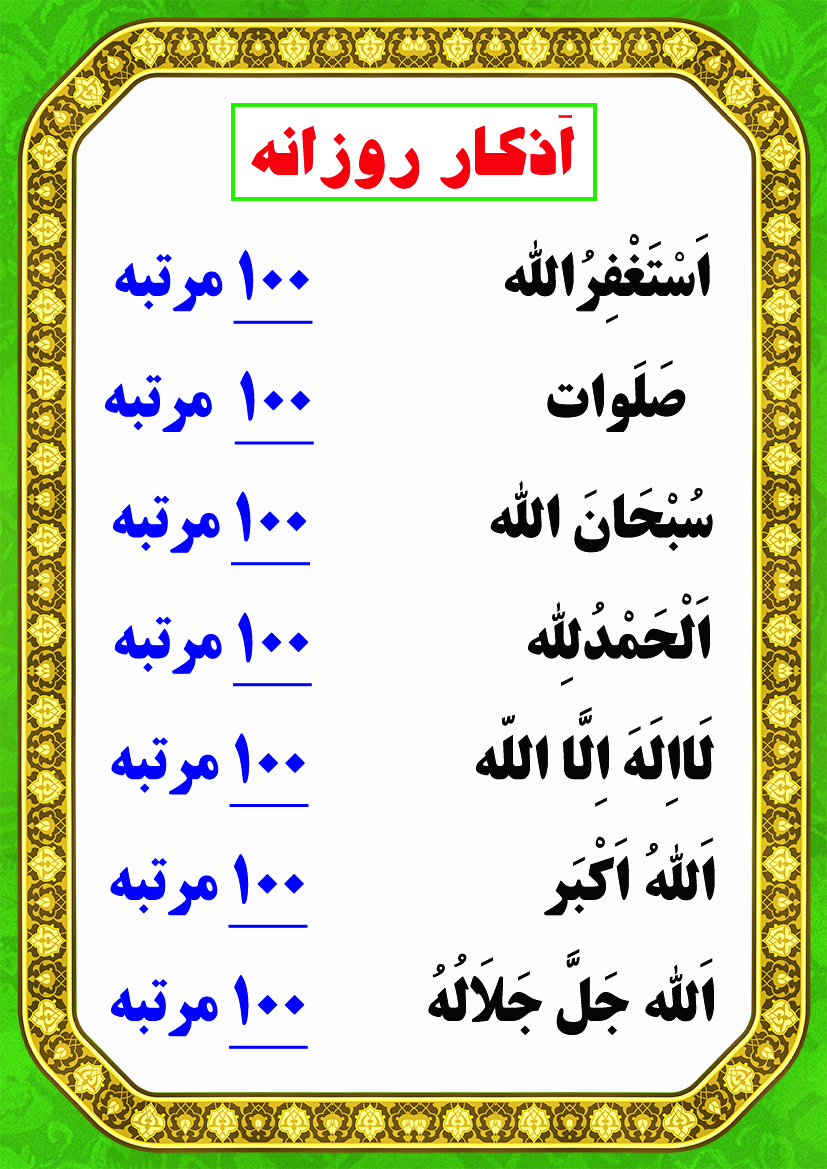 اَذکار روزانه
اَسْتَغْفِرُالله ۱۰۰ مرتبه
صَلَوات ۱۰۰ مرتبه
سُبْحَانَ الله ۱۰۰ مرتبه
اَلْحَمْدُلِلّه ۱۰۰ مرتبه
لَااِلَهَ اِلَّا اللّه ۱۰۰ مرتبه
اَللهُ اَکْبَر ۱۰۰ مرتبه
اَلله جَلَّ جَلَالُهُ ۱۰۰ مرتبه